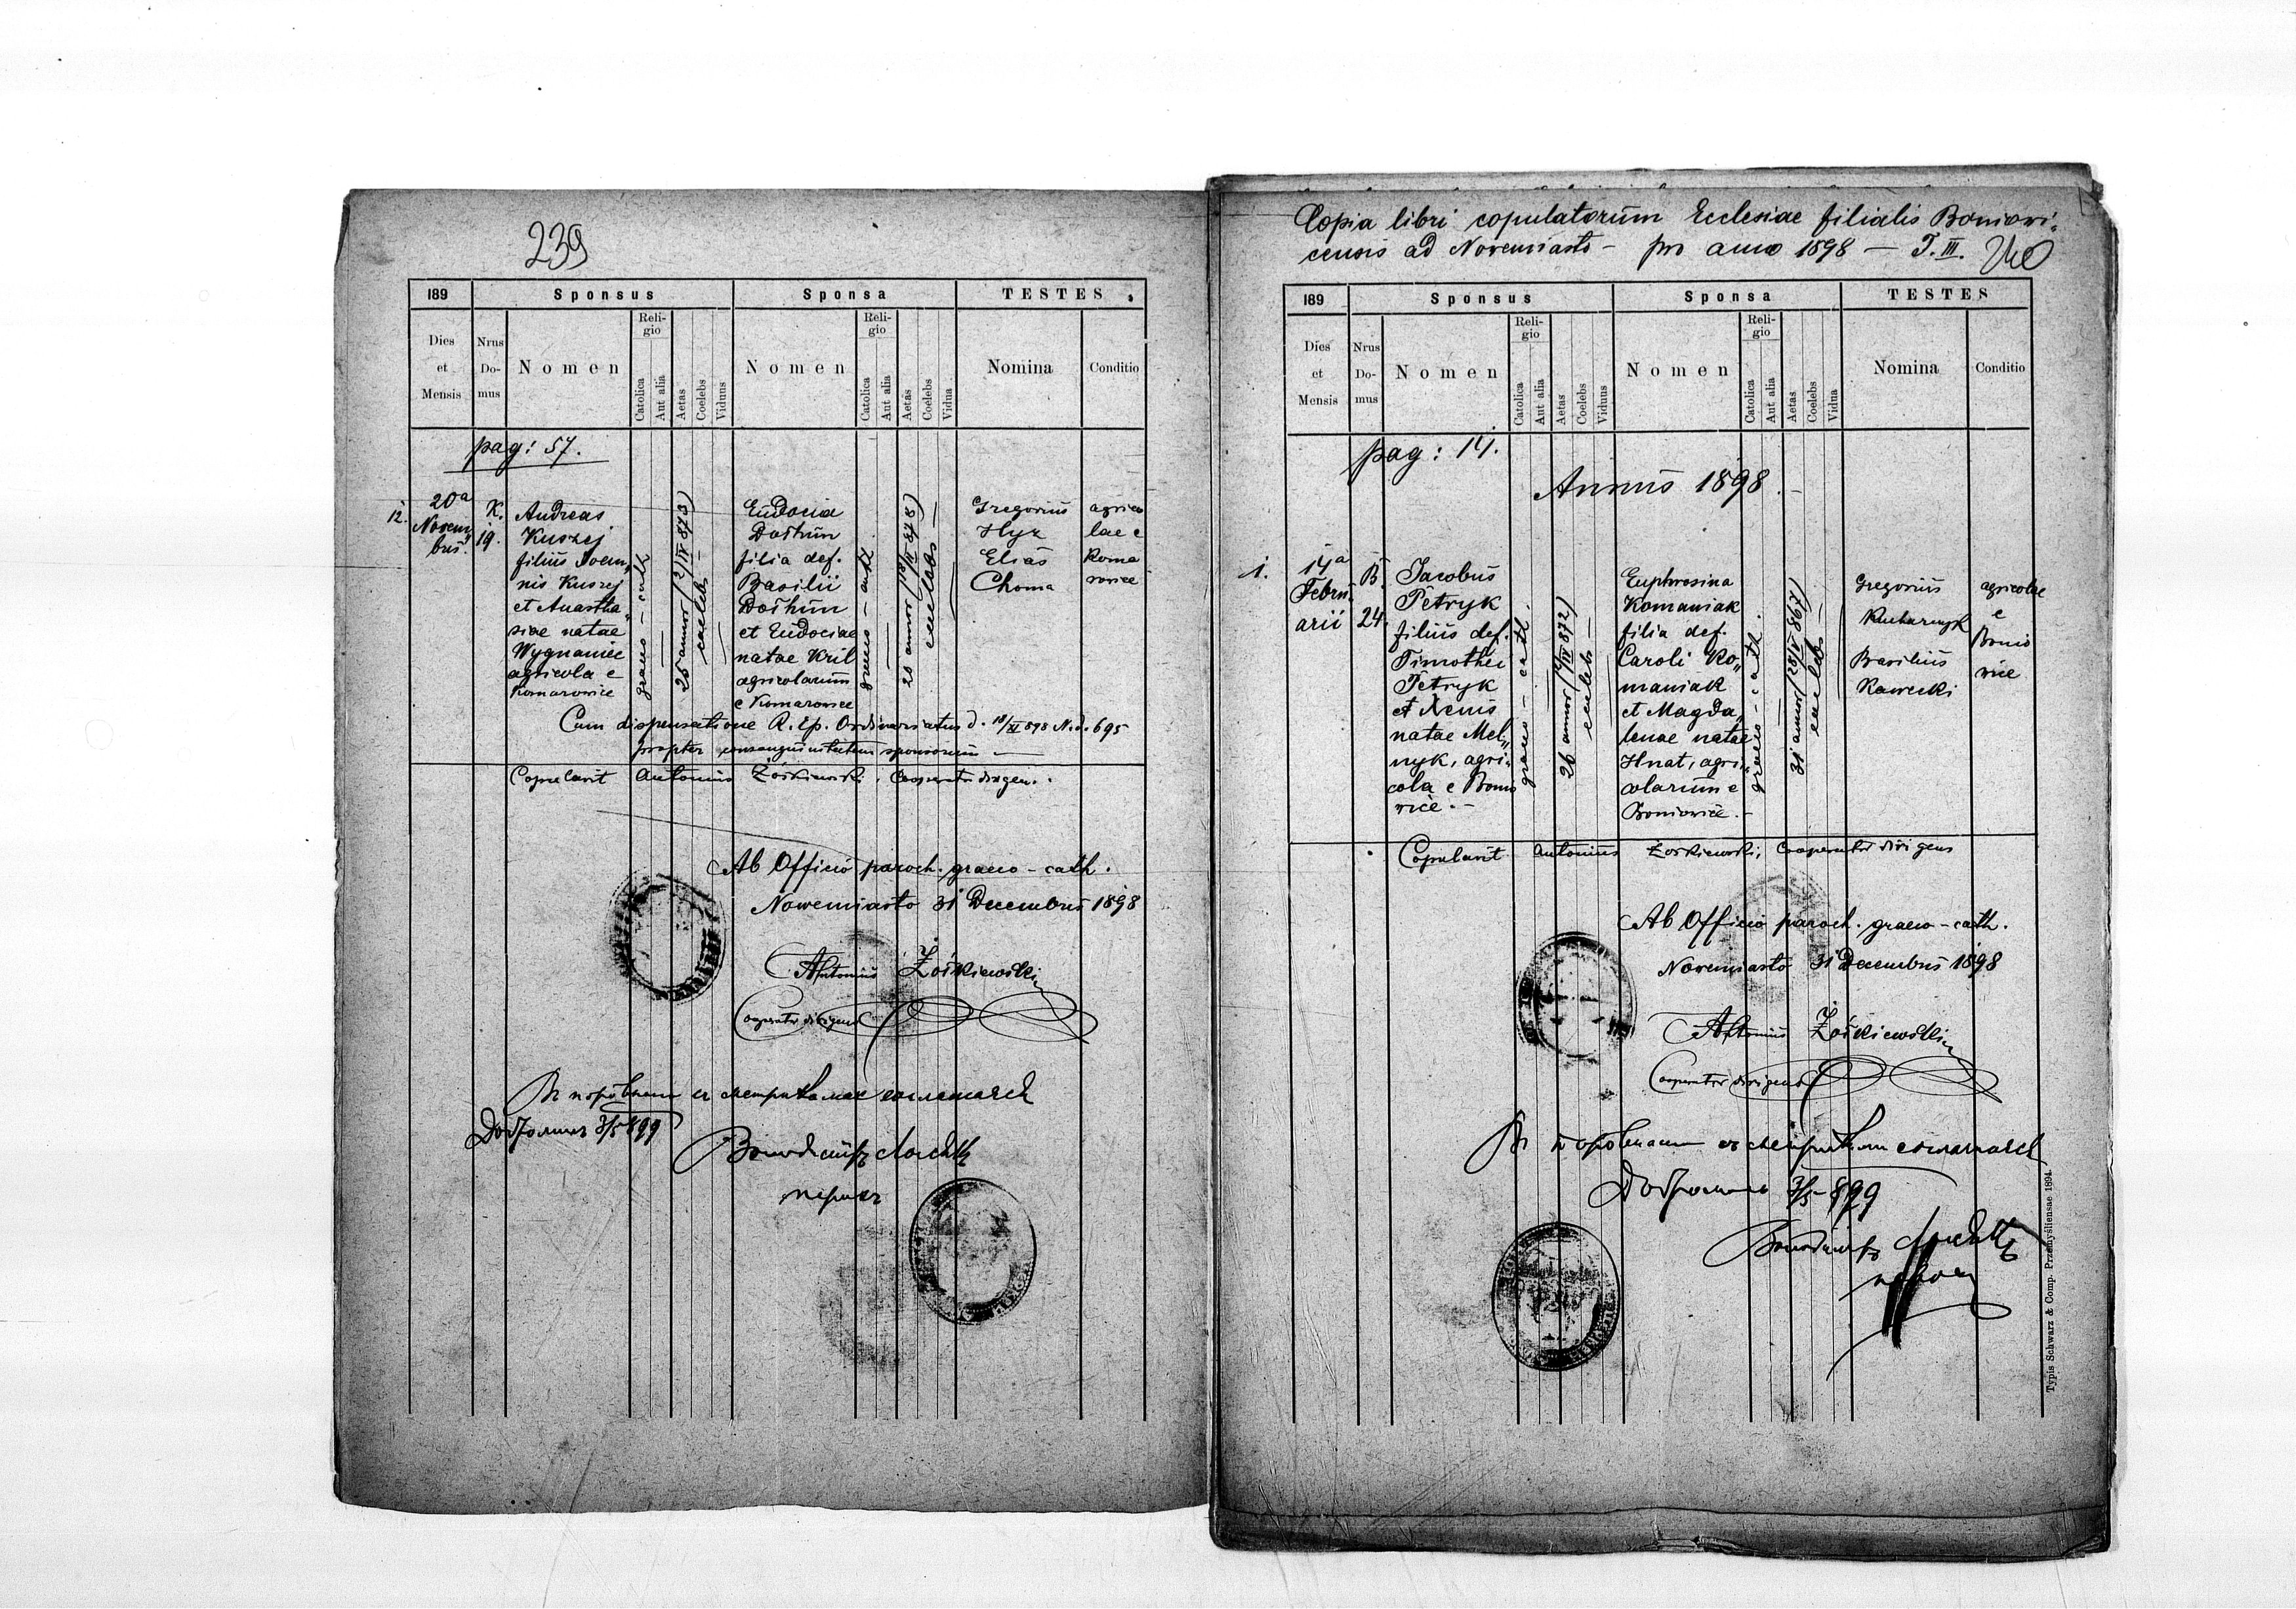 239
189 Sponsus Sponsa TESTES
Dies et Mensis Nrus Domus Nomen Religio Catolica Aut alia Aetas Coelebs Viduus Nomen Religio Catolica Aut alia Aetas Coelebs Vidua Nomina Conditio
pag: 57.
12.
20a
Novem
bris.
K.
19.
Andreas
Kuszej
filius Joan„
nis Kuszej
et Anastha„
siae natae
Wygnaniec
agricola e
Komarowice
graeco - cath
25 annor (2/IV 873)
caelebs
Eudocia
Doshun
filia def.
Basilii
Doshun
et Eudociae
natae Kril
agricolarum
e Komarowice
graeco - cath
caelebs
Gregorius
Hyz
Elias
Choma
agrico
lae e
Koma
rowice
Cum dispensatione R. Ep. Ordinariatus d. 18/XI 898 N. d. 695
propter consanguinitatem sponsorum
Copulavit Antonius Żoskiewski, Cooperator dirigen.
Ab Officio paroch. graeco - cath.
Nowemiasto 31 Decembris 1898
Antonius Żoskiewski
Cooperator dirigens
3/5 899
Copia libri copulatorum Ecclesiae filialis Boniowi„
censis ad Novemiasto - pro anno 1898 — T. III. 240
189 Sponsus Sponsa TESTES
Dies et Mensis Nrus Domus Nomen Religio Catolica Aut alia Aetas Coelebs Viduus Nomen Religio Catolica Aut alia Aetas Coelebs Vidua Nomina Conditio
pag: 14.
Annus 1898
1.
14a
Febru
arii
B.
24.
Jacobus
Petryk
filius def.
Timothei
Petryk
et Xenis
natae Mel„
nyk, agri„
cola e Bonio
wice. -
graeco - cath.
caelebs -
Euphrosina
Komaniak
filia def.
Caroli Ko„
maniak
et Magda„
lenae natae
Hnat, agri„
colarum e
Boniowice. -
graeco - cath.
31 annor (28/IV 867)
caelebs
Gregorius
Kucharczyk
Basilius
Kawecki
agricolae
e
Bonio
wice
Copulavit Antonius Żoskiewski, Cooperator dirigens
Ab Officio paroch. graeco - cath.
Novemiasto 31 Decembris 1898
Antonius Żoskiewski
Cooperator dirigens
3/5 899
Typis Schwarz & Comp. Przemyśliensae 1894.